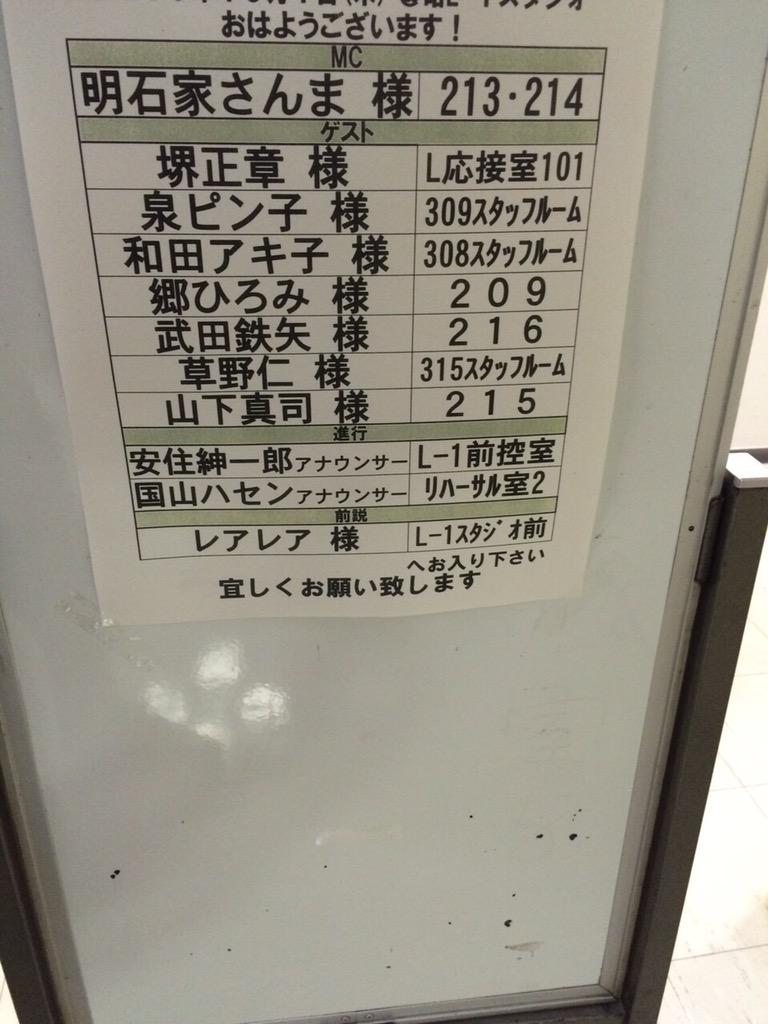 おはようございます！
MC
明石家さんま 様 213・214
ゲスト
堺正章 様 L応接室101
泉ピン子 様 309スタッフルーム
和田アキ子 様 308スタッフルーム
郷ひろみ 様 209
武田鉄矢 様 216
草野仁 様 315スタッフルーム
山下真司 様 215
進行
安住紳一郎アナウンサー L-1前控室
国山ハセンアナウンサー リハーサル室2
前説
レアレア 様 L-1スタジオ前
へお入り下さい
宜しくお願い致します